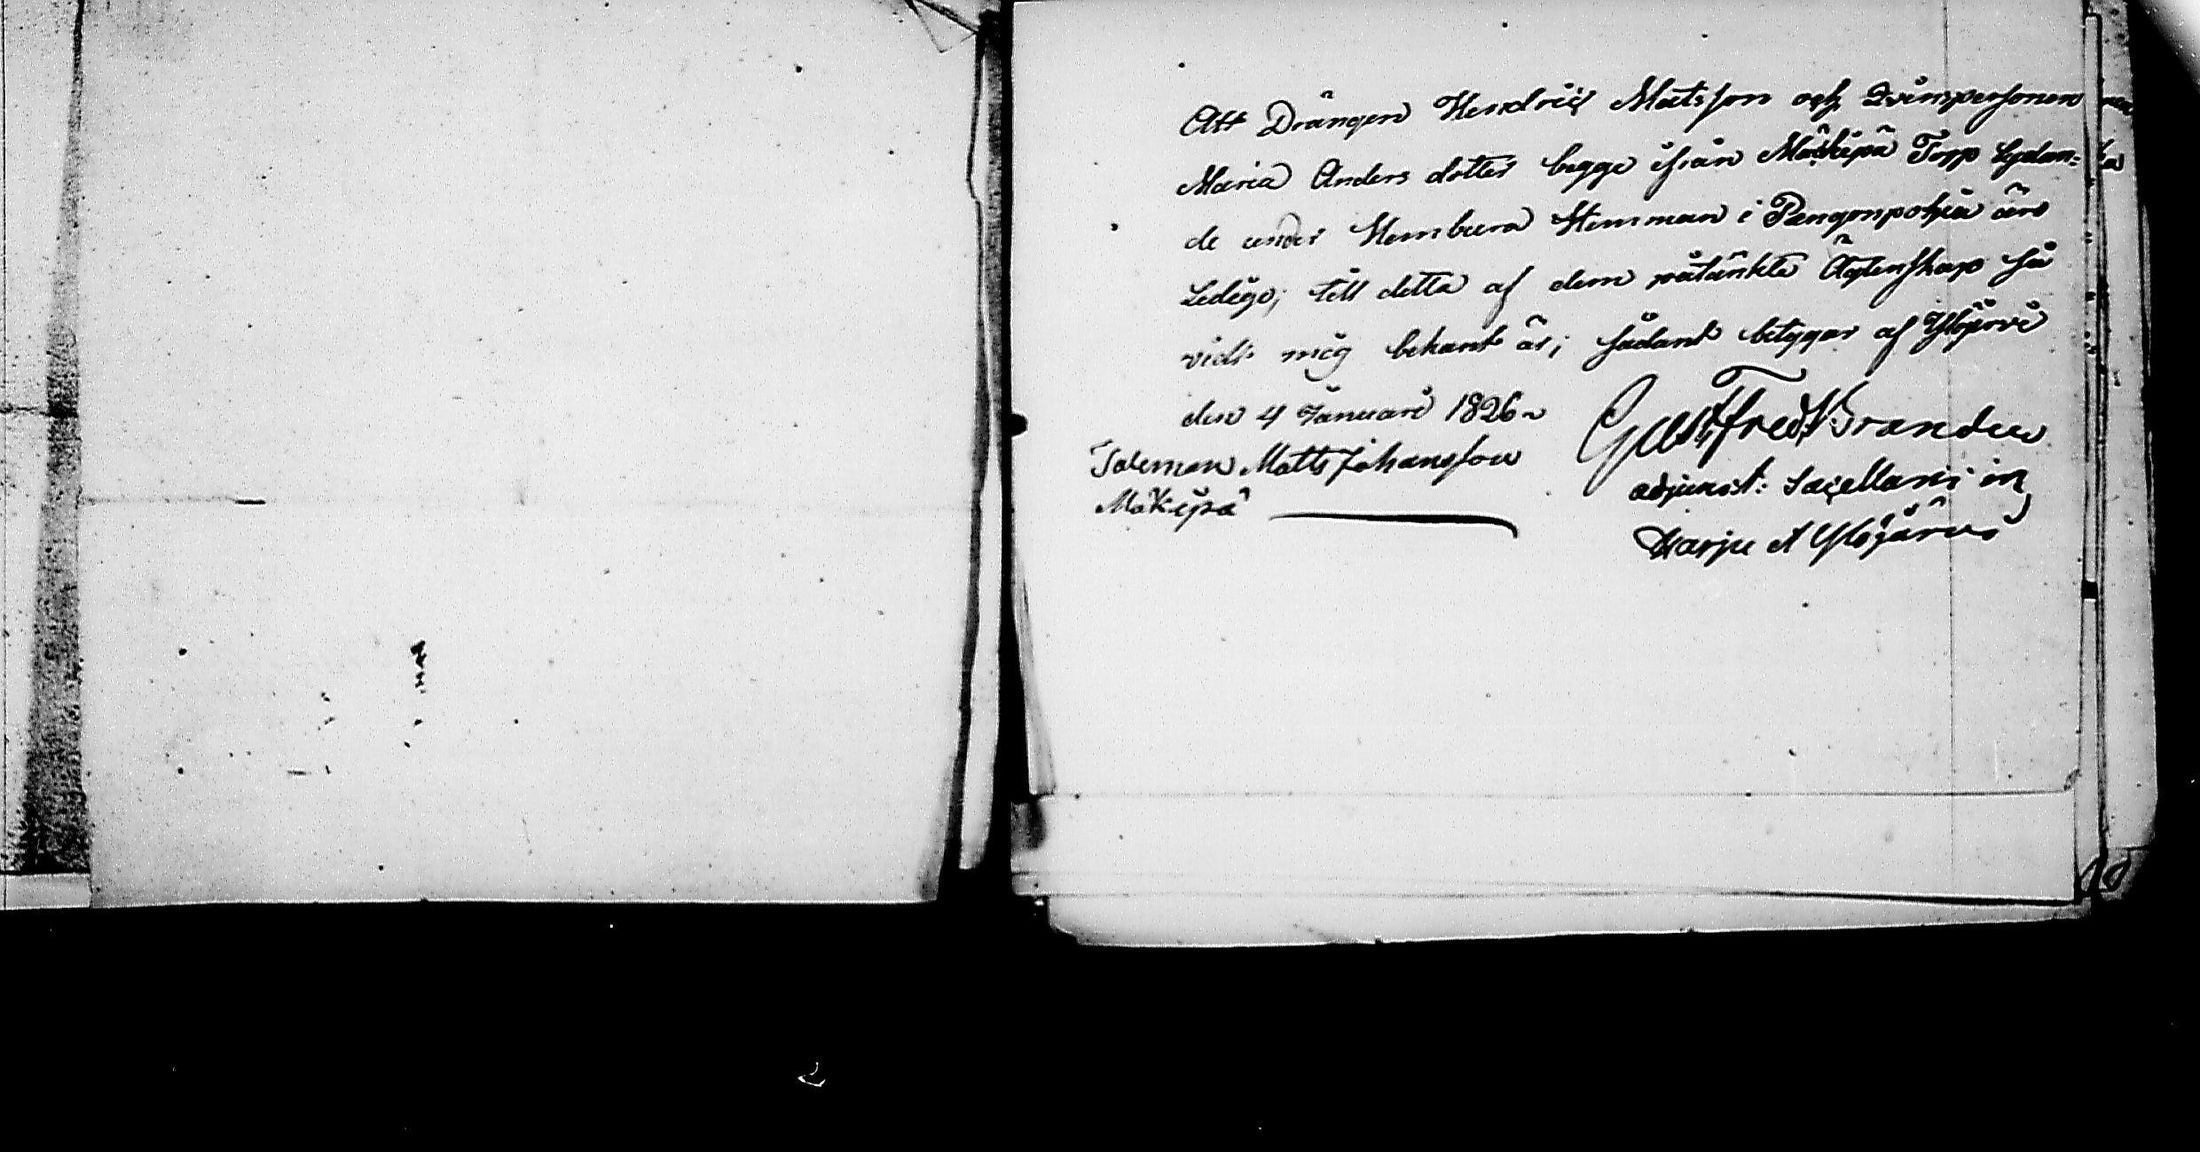 Att Drängen Hendrich Matsson och Qvinspersonen
Maria Anders dotter begge ifrån Mäkipä Torp Lydan=
de under Hembura Hemman i Pengonpohja äro
Ledige; till detta af dem påtänkte Ägtenskap så
vidt mig bekant är; sådant betygar af Ylöjervi
den 4 Januari 1826
Gust: Fred: Brander
Taleman Matts Johansson
adjunct: Sacellani in
Mäkipä
Harju et Ylöjärvi